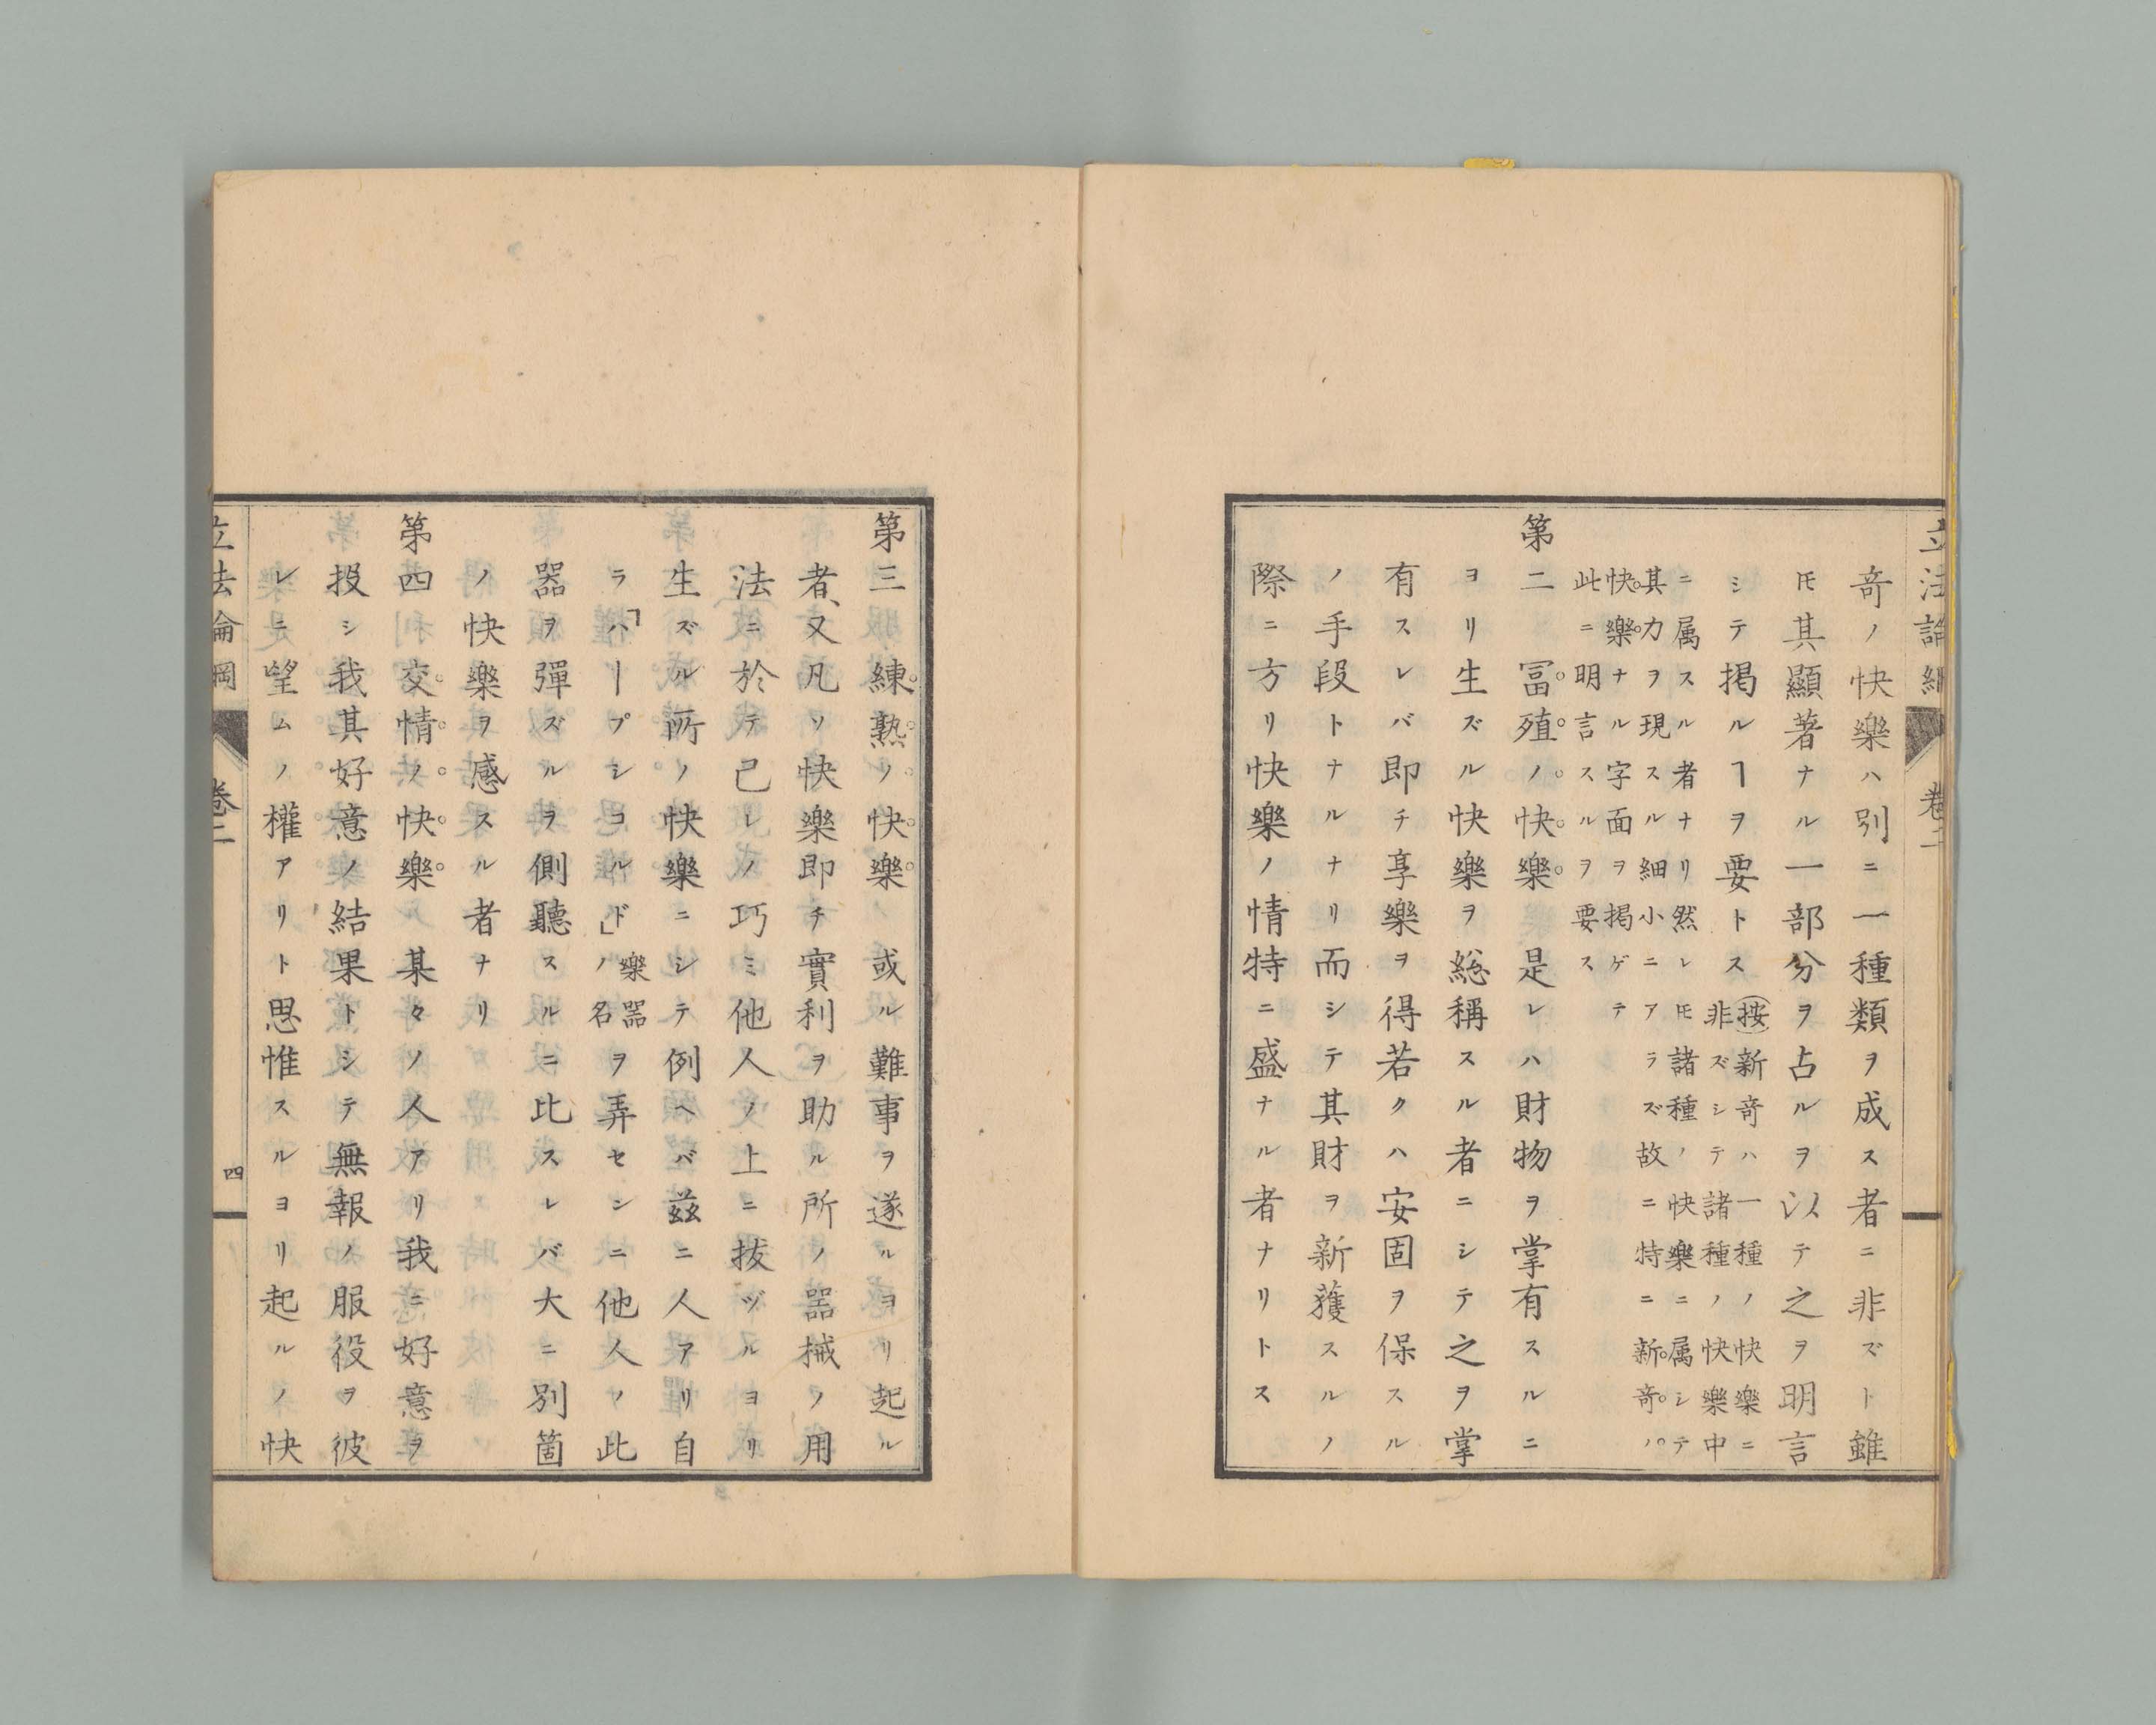 立法論綱 卷二
奇ノ快樂ハ別ニ一種類ヲ成ス者ニ非ズト雖
㐧其顯著ナル一部分ヲ占ルヲ以テ之ヲ明言
シテ掲ルヿヲ要トス
按新奇ハ一種ノ快樂ニ
非ズシテ諸種ノ快樂中
ニ属スル者ナリ然レ𪜈諸種ノ快樂ニ属シテ
其力ヲ現スル細小ニアラズ故ニ特ニ新奇ノ
快樂ナル字面ヲ掲ゲテ
此ニ明言スルヲ要ス
第二 冨殖ノ快樂 是レハ財物ヲ掌有スルニ
ヨリ生ズル快樂ヲ総稱スル者ニシテ之ヲ掌
有スレバ即チ享樂ヲ得若クハ安固ヲ保スル
ノ手段トナルナリ而シテ其財ヲ新獲スルノ
際ニ方リ快樂ノ情特ニ盛ナル者ナリトス
第三 練熟ノ快樂 或ル難事ヲ遂ルヨリ起ル
者、又凡ソ快樂即チ實利ヲ助ル所ノ器械ノ用
法ニ於テ己レノ巧ミ他人ノ上ニ拔ヅルヨリ
生ズル所ノ快樂ニシテ例ヘバ茲ニ人アリ自
ラ「ハープシコルド」樂器ノ名ヲ弄センニ他人ノ此
器ヲ彈ズルヲ側聽スルニ比スレバ大ニ別箇
ノ快樂ヲ感スル者ナリ
第四 交情ノ快樂 某々ノ人アリ我ニ好意ヲ
投シ我其好意ノ結果トシテ無報ノ服役ヲ彼
レニ望ムノ權アリト思惟スルヨリ起ルノ快
立法論綱 卷二 四